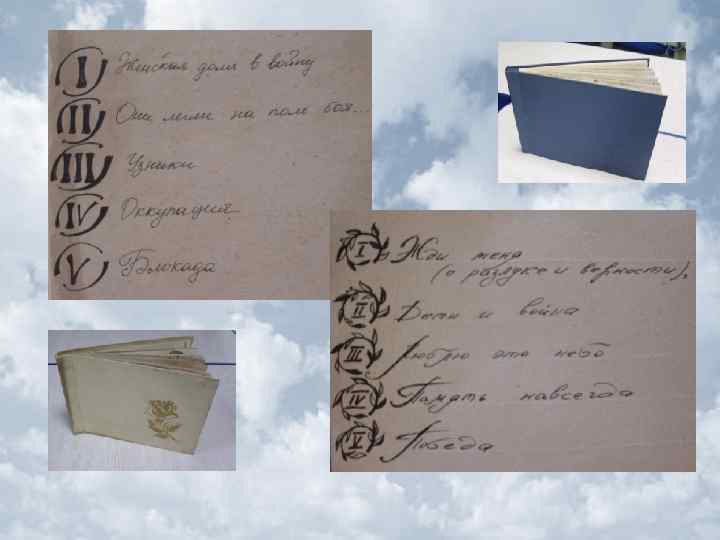 I Женская доля в войну
II Они легли на поле боя...
III Узники
IV Оккупация
V Блокада
I Жди меня
(о разлуке и верности).
II Дети и война
III Люблю это небо
IV Память навсегда
V Победа